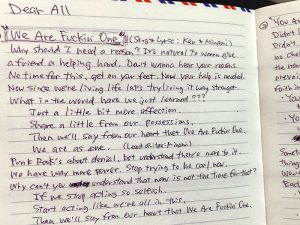 Dear All
"We Are Fuckin' One" (Song & Lyric : Ken & Minami)
Why should I need a reason? It's natural to wanna give
a friend a helping hand. Don't wanna hear your reasons.
No time for this, get on your feet. Now your help is needed.
Now since we're living life let's try living it way stronger.
What in the world have we just learned???
Just a little bit more affection.
Share a little from our possessions.
Then we'll say from our heart that We Are Fuckin' One.
We are as one.
Punk Rock's about denial, but understand there's more to it.
We have way more power. Stop trying to be cool now.
Why can't you understand that now is not the time for that?
If we stop acting so selfish.
Start acting like we're all in this.
Then we'll say from our heart that We Are Fuckin' One.
"You A
Didn't
Didn't